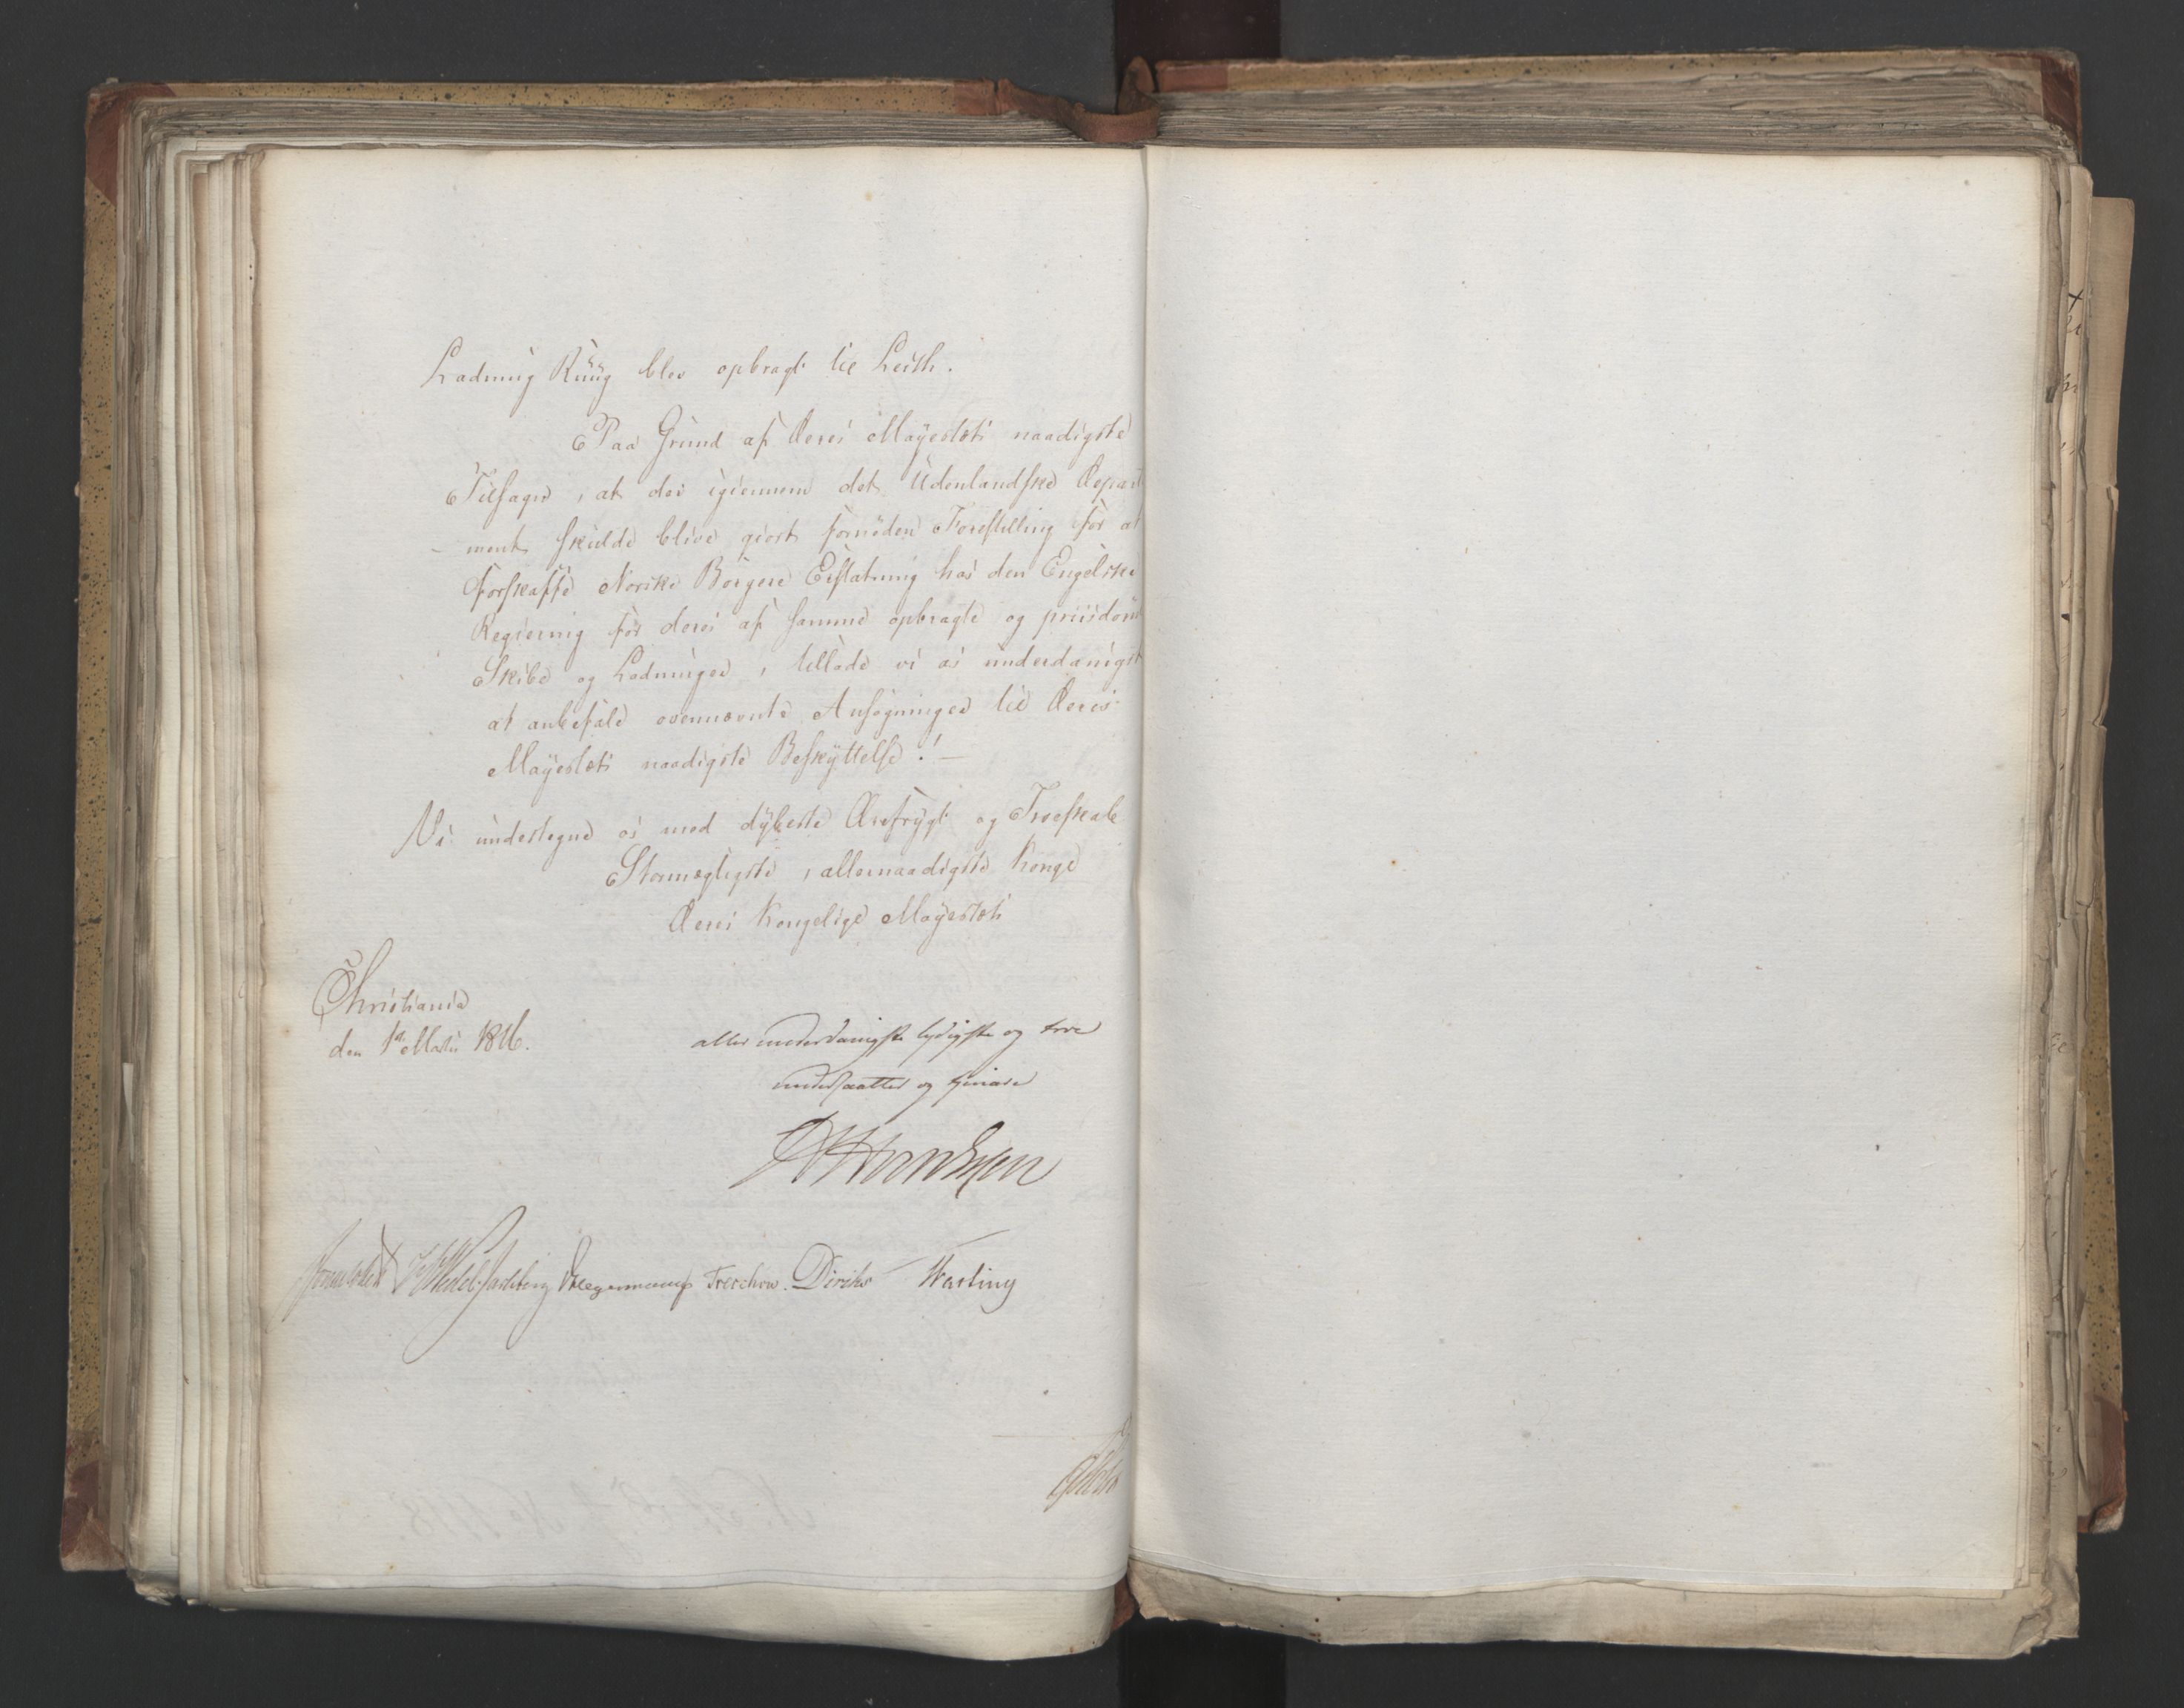 Ladning Ruug blev opbragt til Leith.
Paa Grund af Deres Mayestæts naadigste
Tilsagn, at der igiennem det Udenlandske Depart
- ment skulde blive giort fornöden Forestilling for at
forskaffe Norske Borgere Erstatning hos den Engelske
Regiering for deres af samme opbragte og priisdömte
Skibe og Ladninger, tillade vi os underdanigst
at anbefale ovennævnte Ansøgninger til Deres
Mayestæts naadigste Beskyttelse! -
Vi undertegne os med dÿbeste Ærefrygt og Troeskab
Stormægtigste, allernaadigste Konge
Deres Kongelige Mayestæts
Christiania
den 1ste Marts 1816.
allerunderdanigste lydigste og troe
undersaatter og tjenere
Sommerhielm JCHWedel-Jarlsberg Hegermann Treschow. Diriks Wasting